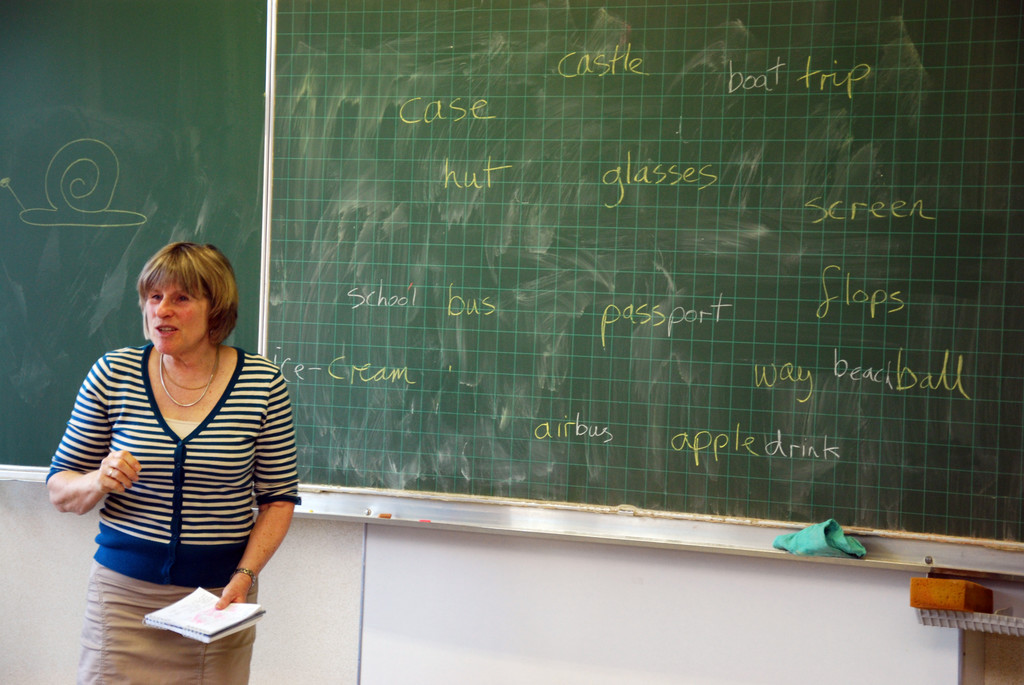 castle
boat trip
case
hut
glasses
screen
school bus
passport
flops
ice-cream
way
beachball
airbus
apple drink